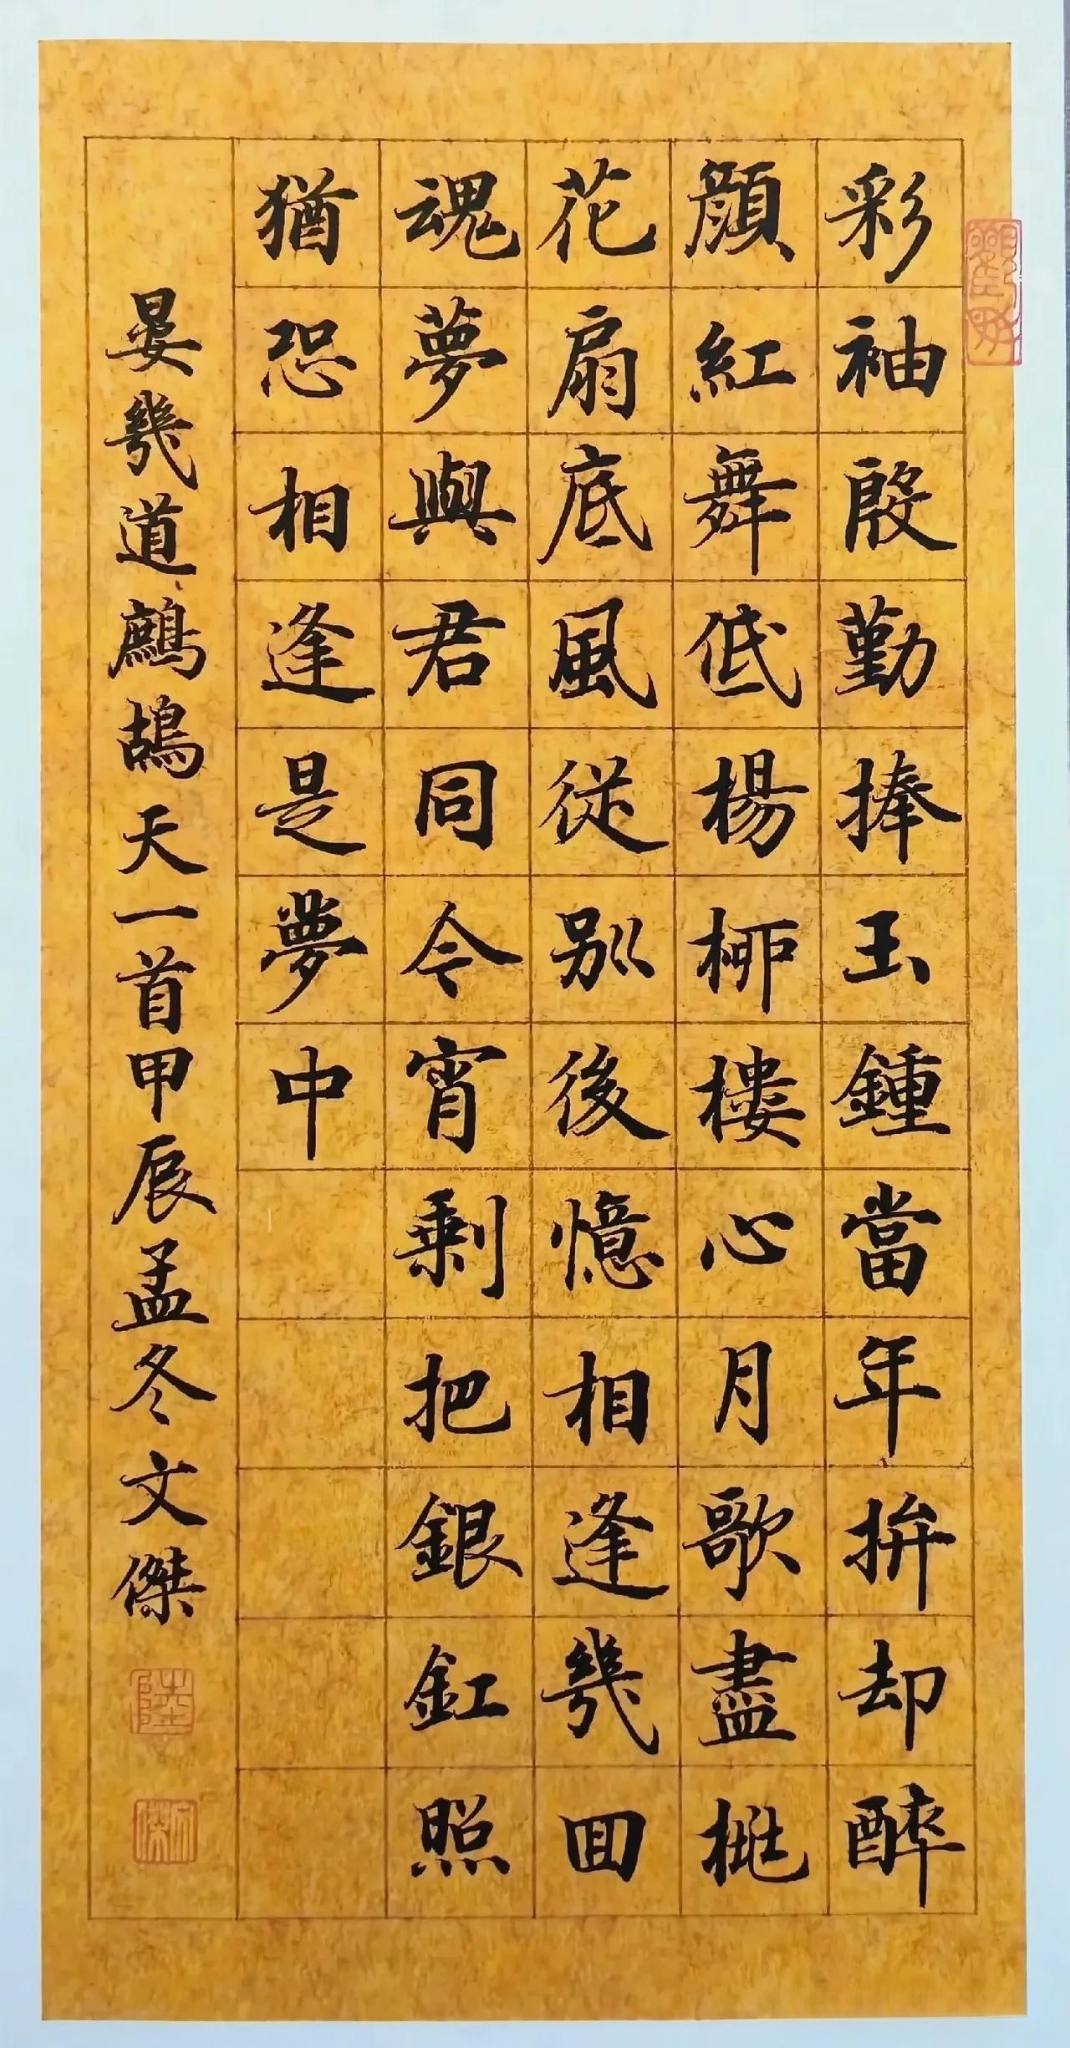 彩袖殷勤捧玉鍾當年拚却醉
顏紅舞低楊柳樓心月歌盡桃
花扇底風從別後憶相逢幾回
魂夢與君同今宵剩把銀釭照
猶恐相逢是夢中
晏幾道鷓鴣天一首甲辰孟冬文傑